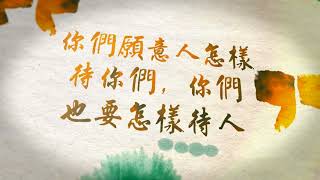 你們願意人怎樣
待你們，你們
也要怎樣待人